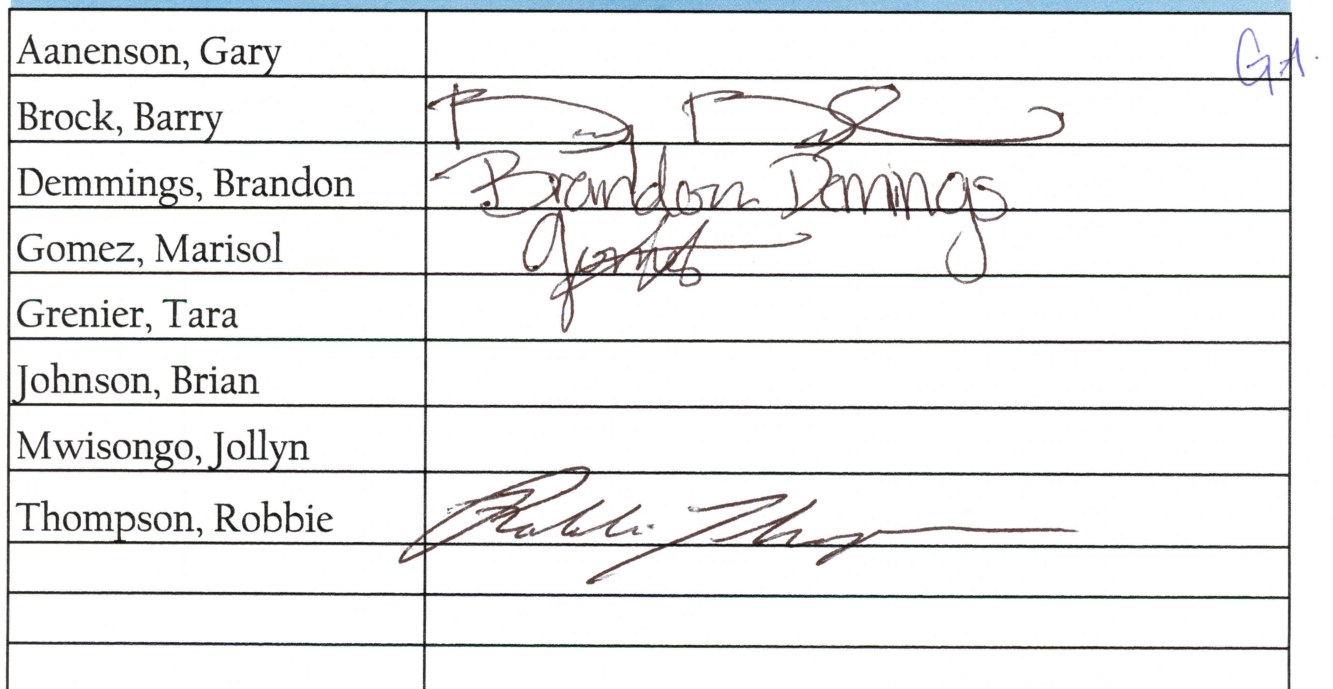 Aanenson, Gary G.A.
Brock, Barry
Demmings, Brandon Brandon Demings
Gomez, Marisol
Grenier, Tara
Johnson, Brian
Mwisongo, Jollyn
Thompson, Robbie Robbie Thompson